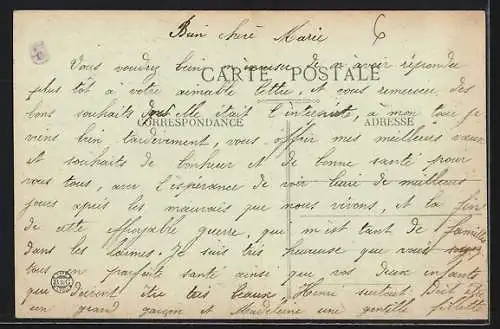 Bien chère Marie
6
Vous voudrez bien m'excuser de n'avoir répondu
CARTE POSTALE
plus tôt à votre aimable lettre, et vous remercier des
bons souhaits dont elle était l'interprète, à mon tour je
CORRESPONDANCE
ADRESSE
viens bien tardivement, vous offrir mes meilleurs vœux
et souhaits de bonheur et de bonne santé pour
vous tous, avec l'espérance de voir luire de meilleurs
jours après les mauvais que nous vivons, et la fin
de cette effroyable guerre, qui met tant de familles
dans les larmes. Je suis très heureuse que vous soyez
tous en parfaite santé ainsi que vos deux enfants
qui doivent être très beaux Henri surtout Doit être
un grand garçon et Madeleine une gentille fillette